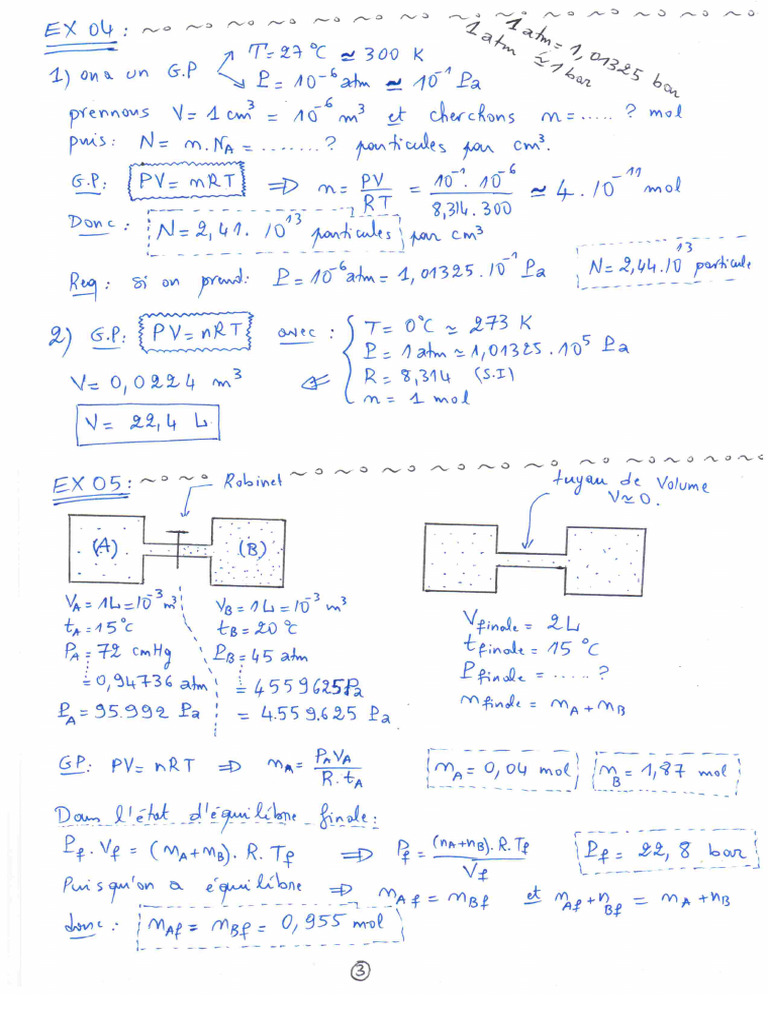 EX 04 :
1 atm = 1,01325 bar
1 atm ≃ 1 bar
1) on a un G.P T = 27°C ≃ 300 K
P = 10⁻⁶ atm ≃ 10⁻¹ Pa
prennous V = 1 cm³ = 10⁻⁶ m³ et cherchons n = ..... ? mol
puis : N = n.N_A = ........ ? particules par cm³.
G.P: PV = nRT ⇒ n = PV/RT = 10⁻¹ . 10⁻⁶ / 8,314 . 300 ≃ 4 . 10⁻¹¹ mol
Donc : N = 2,41 . 10¹³ particules par cm³
Req : si on prend : P = 10⁻⁶ atm = 1,01325 . 10⁻¹ Pa N = 2,44.10¹³ particule
2) G.P: PV = nRT avec : T = 0°C ≃ 273 K
P = 1 atm ≃ 1,01325 . 10⁵ Pa
V = 0,0224 m³ ⇐ R = 8,314 (S.I)
n = 1 mol
V = 22,4 L
EX 05 : Robinet tuyau de Volume
V ≃ 0.
(A) (B)
V_A = 1L = 10⁻³ m³ V_B = 1L = 10⁻³ m³ V_finale = 2L
t_A = 15°C t_B = 20°C t_finale = 15°C
P_A = 72 cmHg P_B = 45 atm P_finale = ..... ?
= 0,94736 atm = 4559625 Pa n_finale = n_A + n_B
P_A = 95.992 Pa = 4.559.625 Pa
GP: PV = nRT ⇒ n_A = P_A V_A / R . t_A n_A = 0,04 mol n_B = 1,87 mol
Dans l'état d'équilibre finale :
P_f . V_f = (n_A + n_B) . R . T_f ⇒ P_f = (n_A + n_B) . R . T_f / V_f P_f = 22,8 bar
Puisqu'on a équilibre ⇒ n_Af = n_Bf et n_Af + n_Bf = n_A + n_B
donc : n_Af = n_Bf = 0,955 mol
3